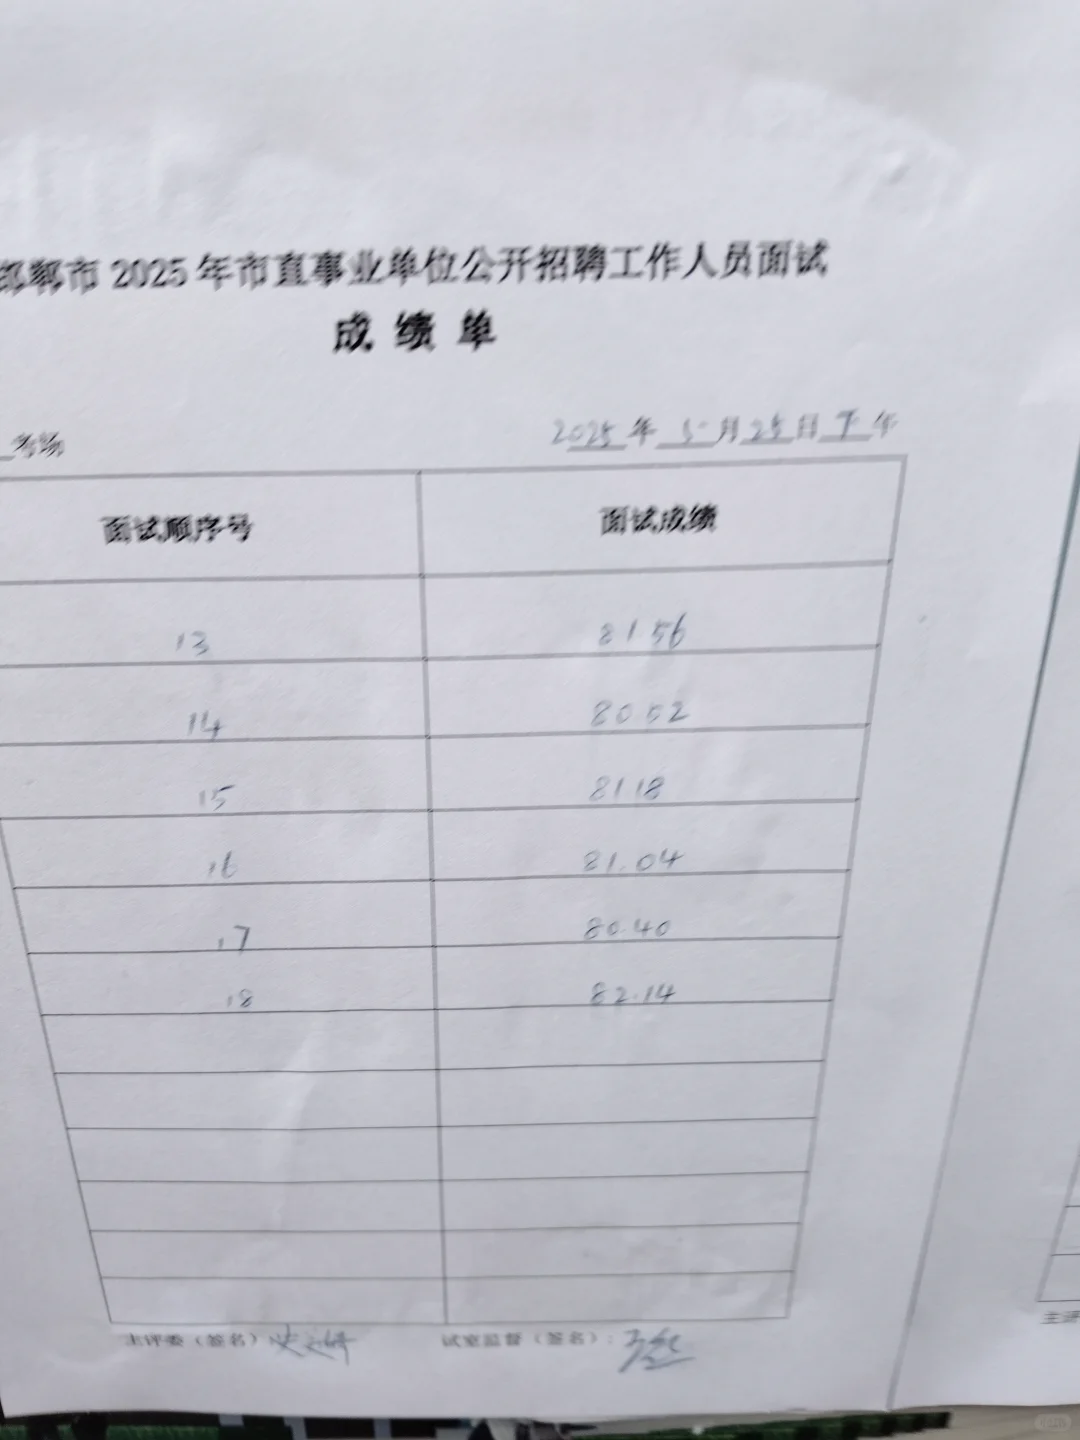 邯郸市 2025 年市直事业单位公开招聘工作人员面试
成 绩 单
考场 2025 年 5 月 25 日 下 午
面试顺序号 面试成绩
13 81.56
14 80.52
15 81.18
16 81.04
17 80.40
18 82.14
主评委（签名） 试室监督（签名）：
主评